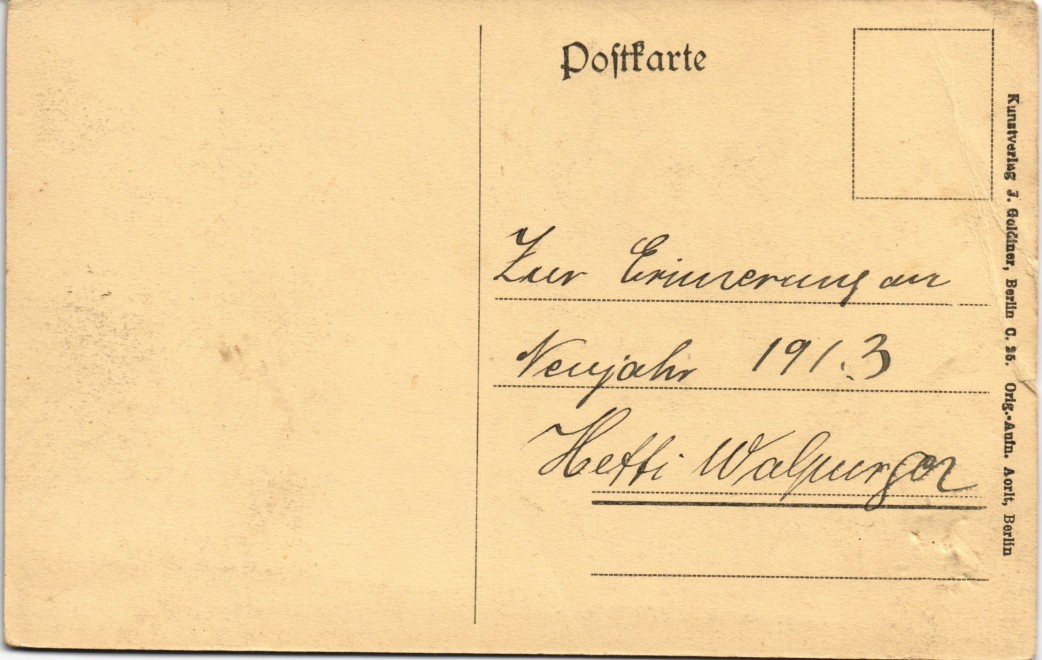 Postkarte
Zur Erinnerung an
Neujahr 1913
Hetti Walpurger
Kunstverlag J. Goldiner, Berlin C. 25. Orig.-Aufn. Aorlt, Berlin